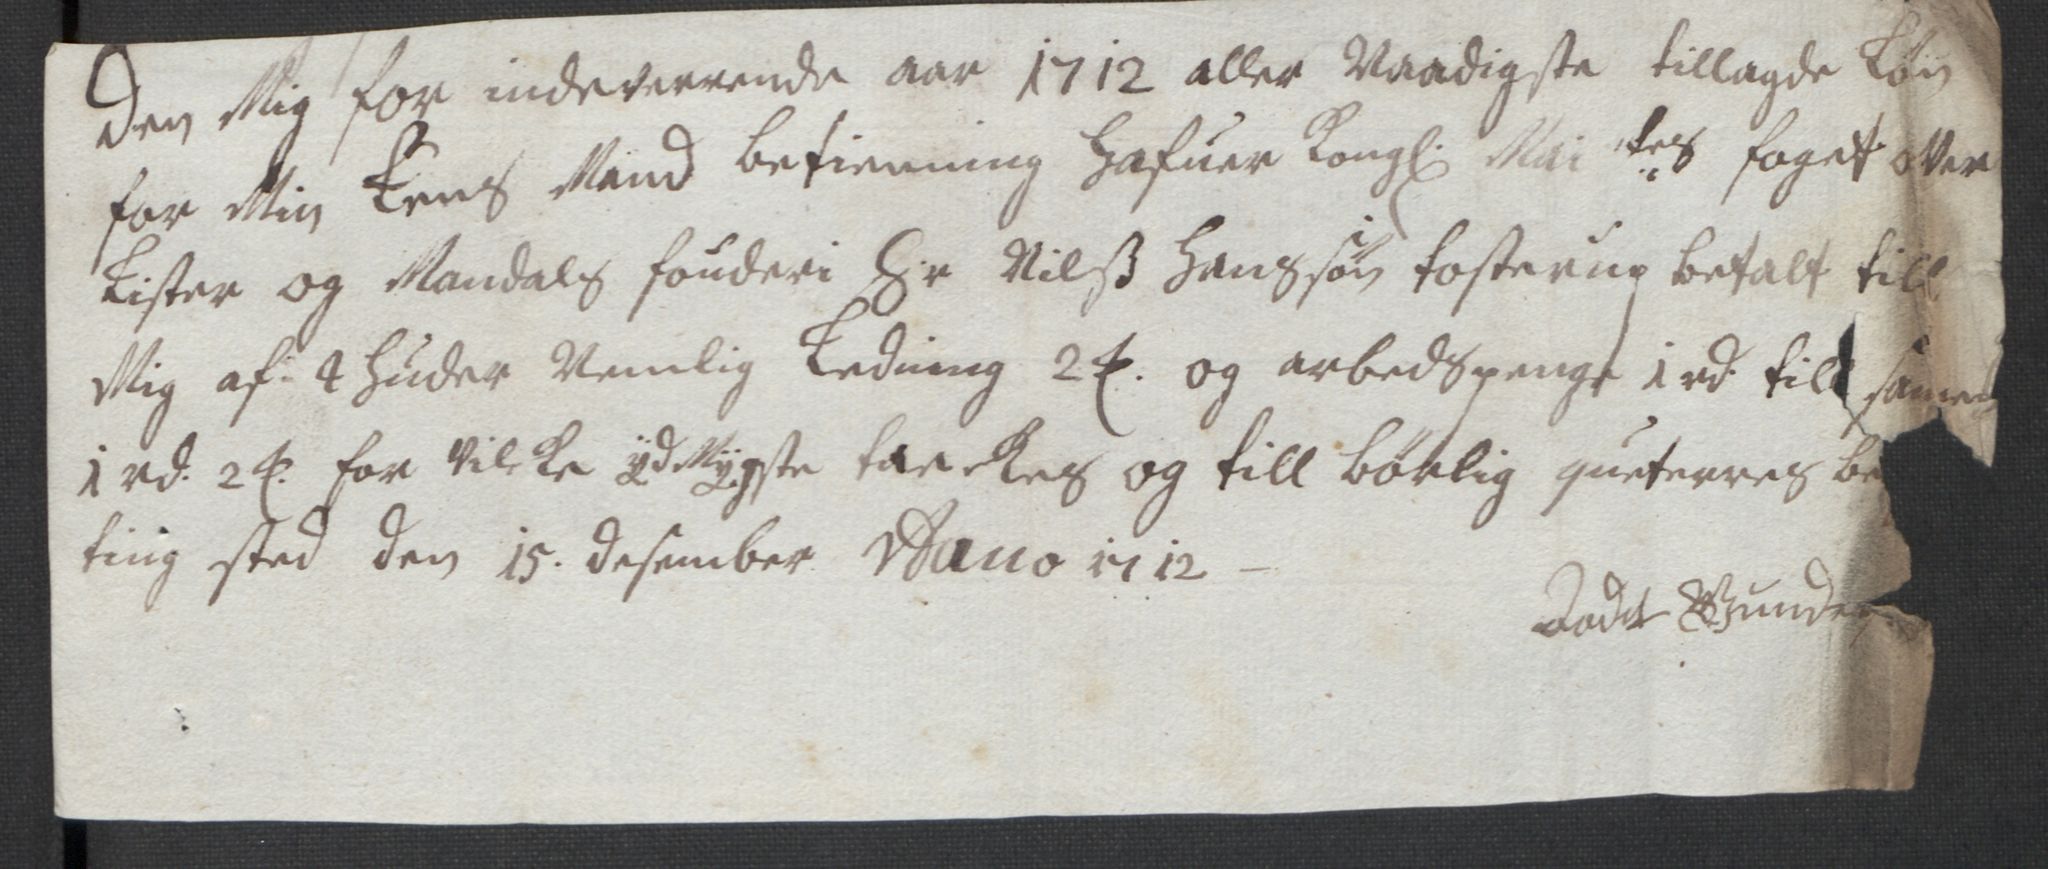 Den Mig for indeverrende aar 1712 aller Naadigste tillagde Løn
for Min Lens Mand betienning Hafuer Kongl. Mai tes foget over
Lister og Mandals fouderi Hr Nilß Hansøn tosterup betalt till
Mig af 4 huder Nemlig Ledning 2 ort. og arbedspenge 1 rd. till samen
1 rd. 2 ort. for vilcke ydMygste tackes og till børlig queterres be
ting sted den 15. desember Anno 1712 -
Todt Wunde